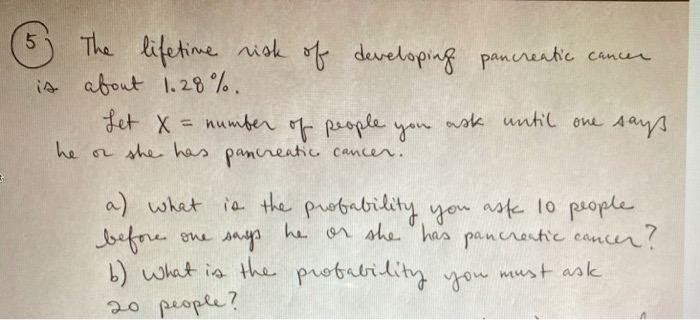 5) The lifetime risk of developing pancreatic cancer
is about 1.28%.
Let X = number of people you ask until one says
he or she has pancreatic cancer.
a) what is the probability you ask 10 people
before one says he or she has pancreatic cancer?
b) What is the probability you must ask
20 people?